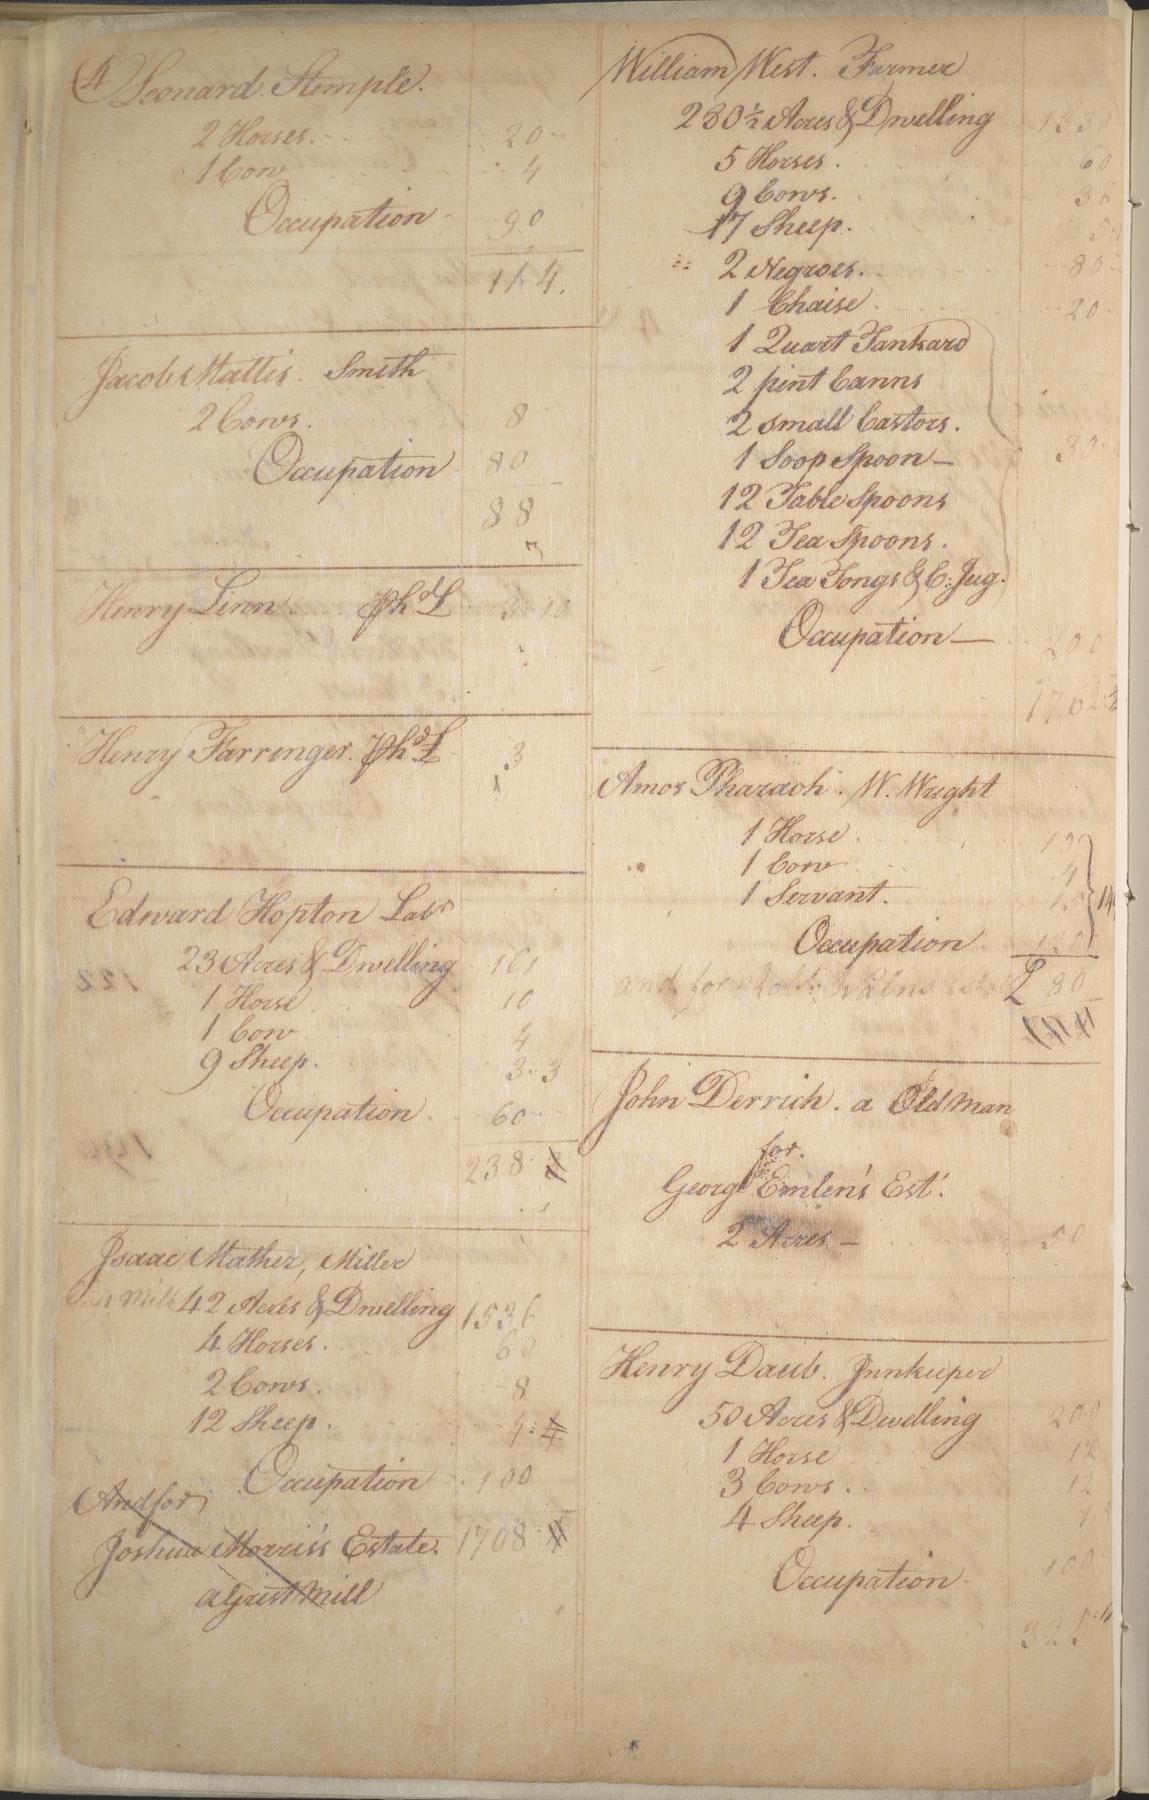 (4
Leonard Stemple.
2 Horses. 20
1 Cow 4
Occupation 90
114.
Jacob Mattis. Smith
2 Cows. 8
Occupation 80
88
Henry Linn Ph d L 3 10
Henry Farringer. Ph d L 3
Edward Hopton Labr
23 Acres & Dwelling 161
1 Horse 10
1 Cow 4
9 Sheep. 3 3
Occupation 60
238
Isaac Mather, Miller
Mill 42 Acres & Dwelling 1536
4 Horses. 60
2 Cows. 8
12 Sheep. 4:4
Occupation 100
And for
Joshua Morris's Estate. 1708
a Grist Mill
William West. Farmer
230½ Acres & Dwelling 1330
5 Horses. 60
9 Cows. 36
17 Sheep. 5
2 Negroes. 80
1 Chaise 20
1 Quart Tankard
2 pint Canns
2 small Castors.
1 Soop Spoon — 30
12 Table Spoons
12 Tea Spoons.
1 Tea Tongs & C: Jug.
Occupation — 200
1762
Amos Pharaoh. W. Wright
1 Horse
1 Cow 4
1 Servant. 14
Occupation 120
and for 80
John Derrich. a Old Man
for.
George Emlen's Est'.
2 Acres — 50
Henry Daub. Innkeeper
50 Acres & Dwelling 200
1 Horse 12
3 Cows. 12
4 Sheep. 1
Occupation 100
325